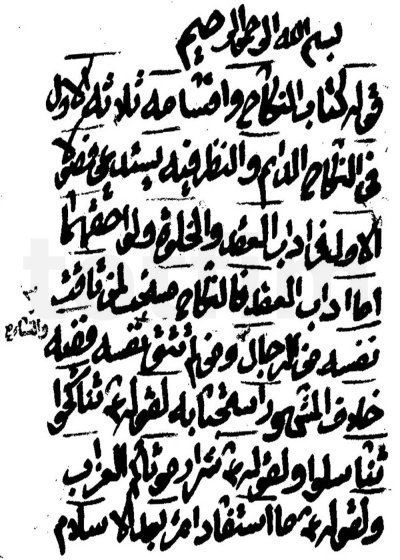 بسم الله الرحمن الرحيم
قوله كتاب النكاح واقسامه ثلاثة الاول
في النكاح الدائم والنظر فيه يستدعي فصولا
الاول في اداب العقد والخلوة ولواحقهما
اما اداب العقد فالنكاح مستحب لمن تاقت
نفسه من الرجال ومن لم تتق نفسه ففيه
والنساء
خلاف المشهور استحبابه لقوله ع تناكحوا
تناسلوا ولقوله ع شرار موتاكم العزاب
ولقوله ع ما استفاد امرء بعد الاسلام